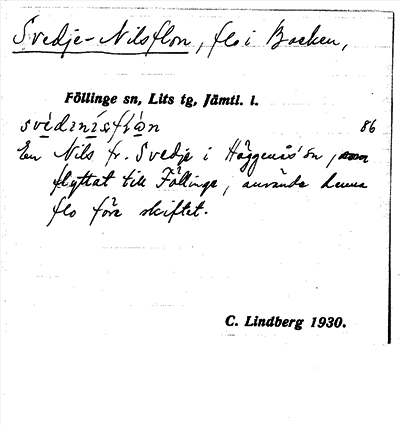 Svedje-Nilsflon, flo i Backen,
Föllinge sn, Lits tg, Jämtl. l.
svèdɪnísflòn 86
En Nils fr. Svedje i Häggenås sn, som
flyttat till Föllinge, använde denna
flo före skiftet.
C. Lindberg 1930.